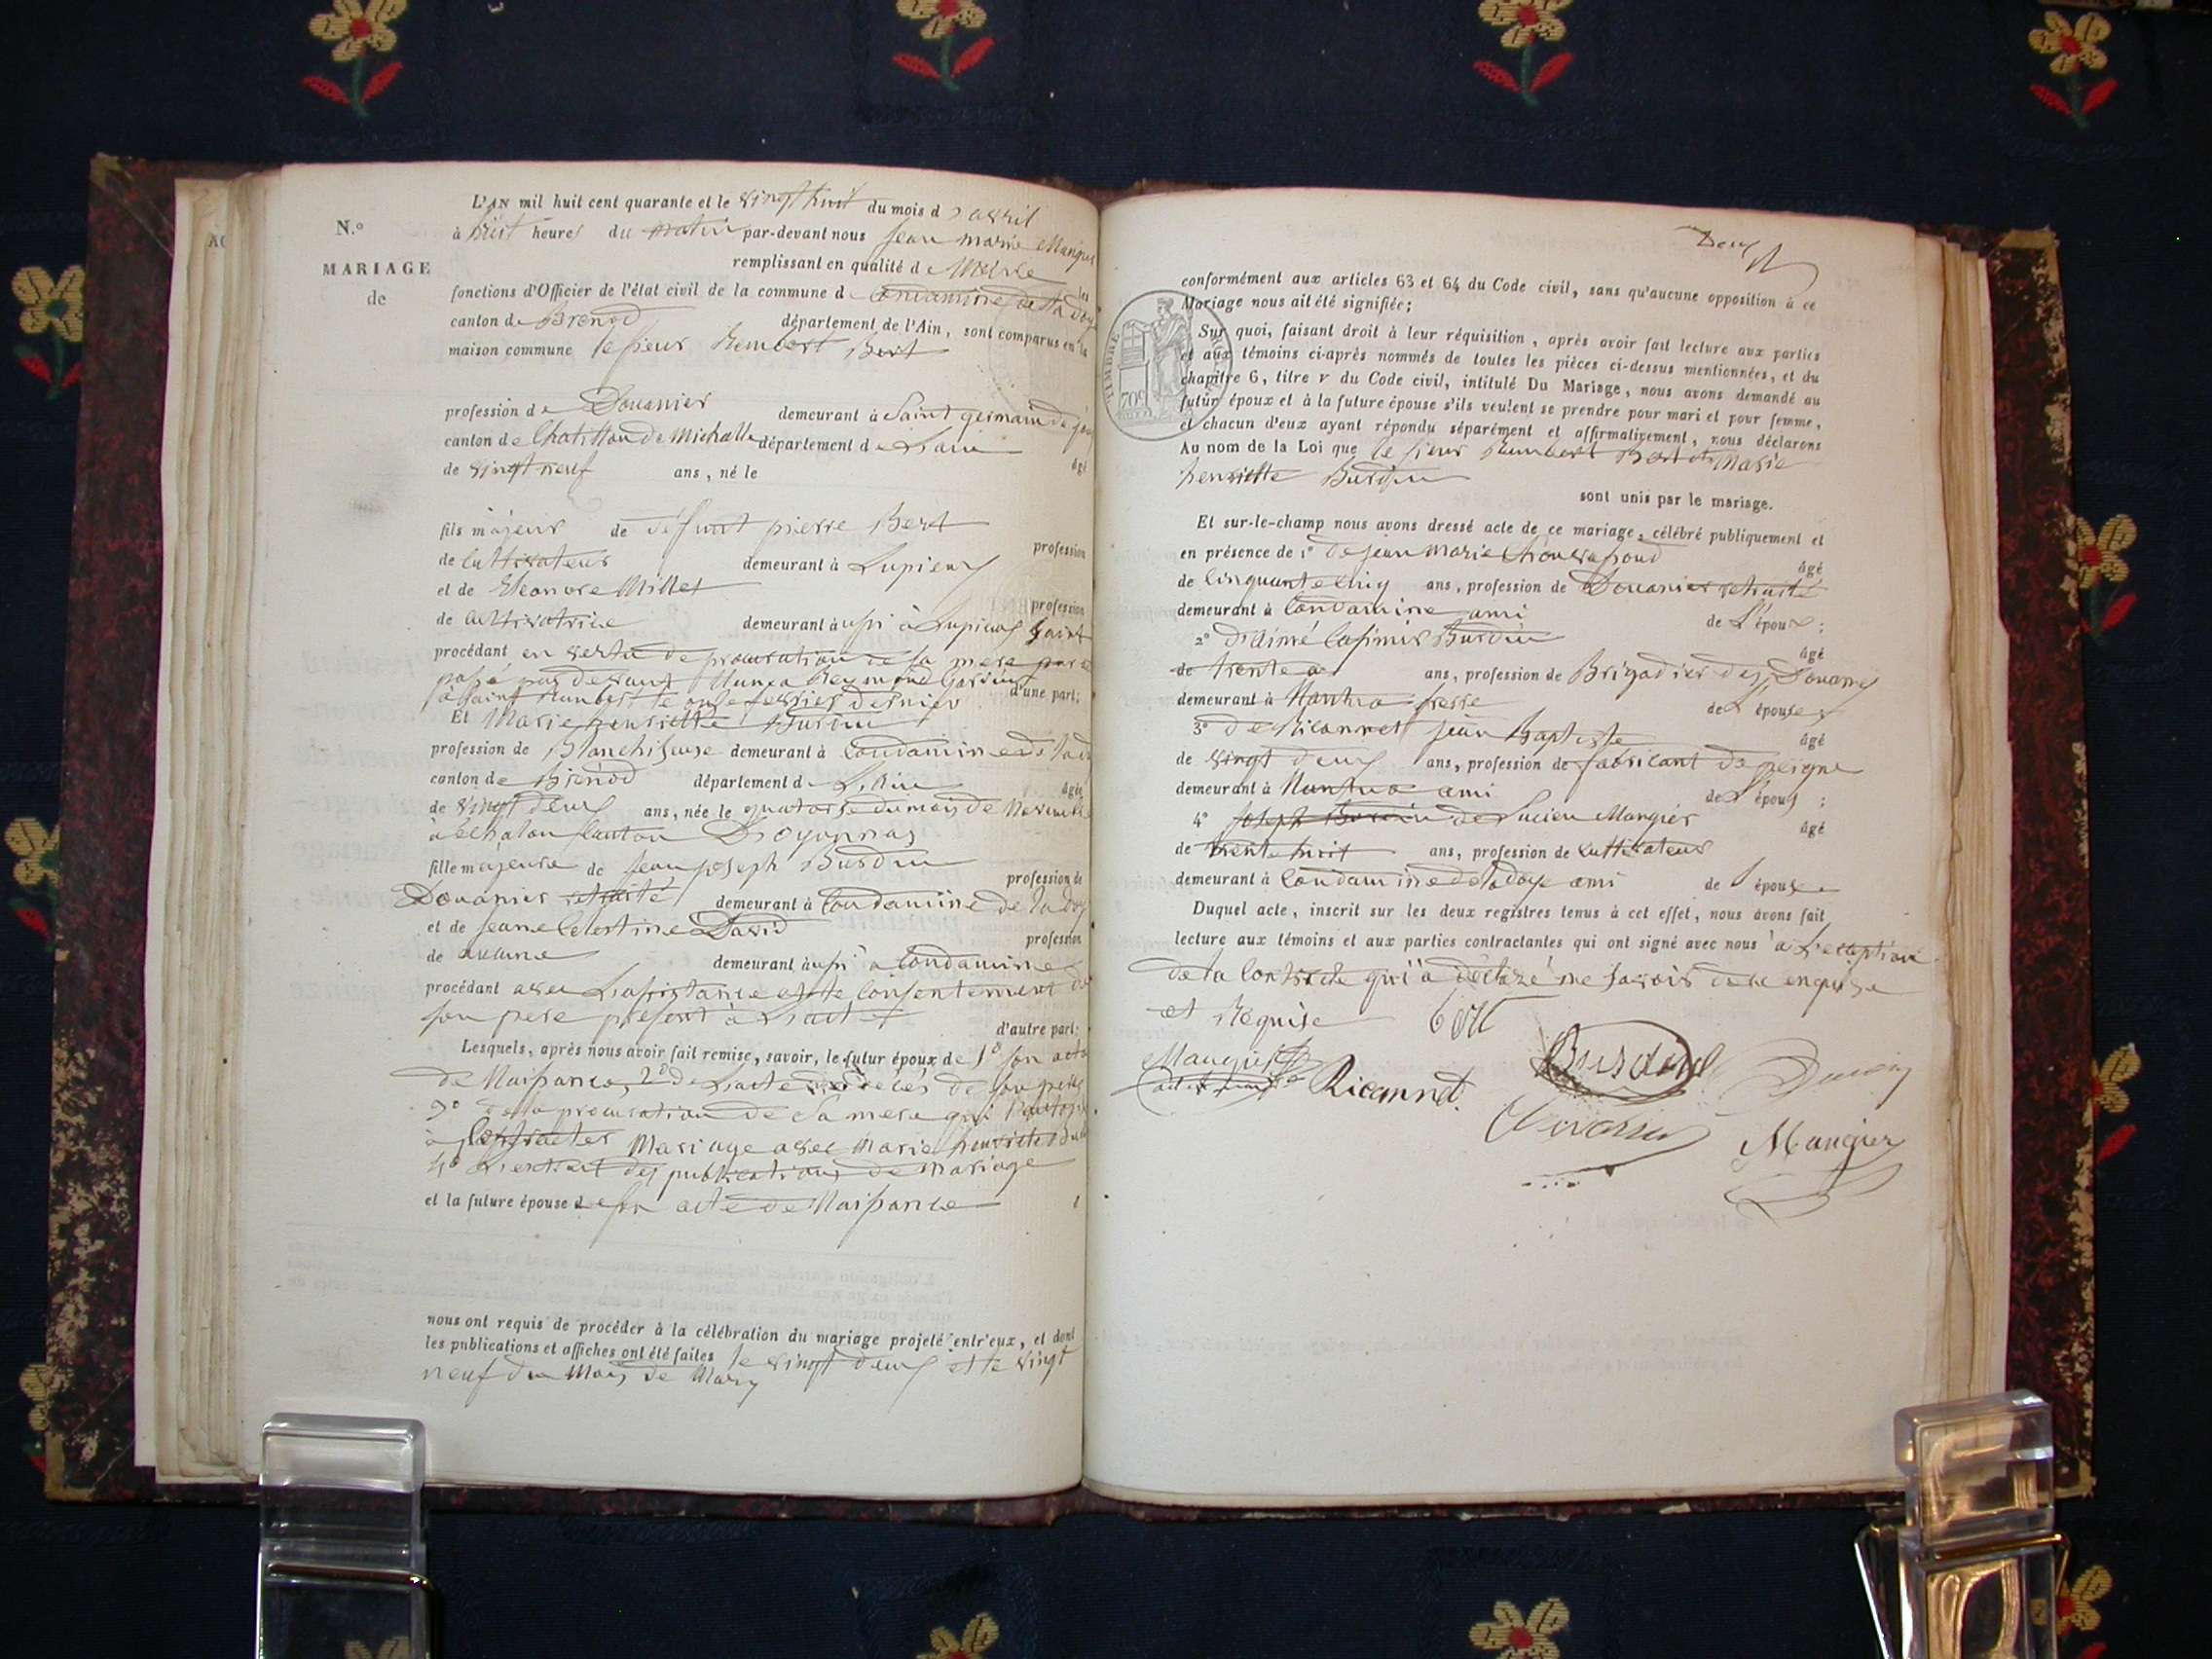 N.º
MARIAGE
de
L'AN mil huit cent quarante et le vingt huit du mois d'avril
à huit heures du matin par-devant nous jean marie Mangier
remplissant en qualité de Maire les
fonctions d'Officier de l'état civil de la commune de Condamine de la doye
canton de Brenod département de l'Ain, sont comparus en la
maison commune le sieur humbert Bert
profession de Douanier demeurant à Saint germain de joux
canton de Chatillon de Michaille département de L'ain âgé
de vingt neuf ans, né le
fils majeur de défunt pierre Bert profession
de Cultivateur demeurant à Lupieux
et de Eleonore Millet profession
de Cultivatrice demeurant aussi à Lupieux
procédant en vertu de procuration de sa mere
passé par devant
à Saint humbert le onze fevrier dernier d'une part;
Et Marie henriette Burdin
profession de Blanchiseuse demeurant à Condamine de lado
canton de Brénod département de L'Ain âgée
de vingt deux ans, née le quatorze du mois de Novembre
à Echalon Canton D'oyonnax
fille majeure de jean joseph Burdin profession de
Douanier retraité demeurant à Condamine de la doy
et de jeane Celestine David profession
de aucune demeurant aussi a Condamine
procédant avec L'assistance et le Consentement de
son pere présent à L'acte d'autre part;
Lesquels, après nous avoir fait remise, savoir, le futur époux de 1º son acte
de Naissance, 2º de L'acte de décés de son pere
3º de la procuration de sa mere qui l'autorise
à Contracter Mariage avec Marie henriette Burdin
4º L'extrait des publications de mariage
et la future épouse de son acte de Naissance
nous ont requis de procéder à la célébration du mariage projeté entr'eux, et dont
les publications et affiches ont été faites le vingt deux et le vingt
neuf du Mois de Mars
Deux
conformément aux articles 63 et 64 du Code civil, sans qu'aucune opposition à ce
Mariage nous ait été signifiée;
TIMBRE
Sur quoi, faisant droit à leur réquisition, après avoir fait lecture aux parties
et aux témoins ci-après nommés de toutes les pièces ci-dessus mentionnées, et du
chapitre 6, titre v du Code civil, intitulé Du Mariage, nous avons demandé au
futur époux et à la future épouse s'ils veulent se prendre pour mari et pour femme,
et chacun d'eux ayant répondu séparément et affirmativement, nous déclarons
Au nom de la Loi que le sieur humbert Bert et Marie
henriette Burdin
sont unis par le mariage.
Et sur-le-champ nous avons dressé acte de ce mariage, célébré publiquement et
en présence de 1º de jean marie âgé
de Cinquante Cinq ans, profession de Douanier retraité
demeurant à Condamine ami de L'époux;
2º D'aimé Casimir Burdin âgé
de trente ans, profession de Brigadier des Douanes
demeurant à Nantua frere de L'épouse;
3º de Ricannet jean Baptiste âgé
de vingt deux ans, profession de fabricant de peigne
demeurant à Nantua ami de L'époux;
4º joseph Burdin de Lucien Mangier âgé
de trente huit ans, profession de Cultivateur
demeurant à Condamine de la doye ami de L'épouse
Duquel acte, inscrit sur les deux registres tenus à cet effet, nous avons fait
lecture aux témoins et aux parties contractantes qui ont signé avec nous à L'exception
de la Contracte qui a déclaré ne savoir de ce enquise
et Requise Bert
Mangier Ricannet Burdin
Mangier